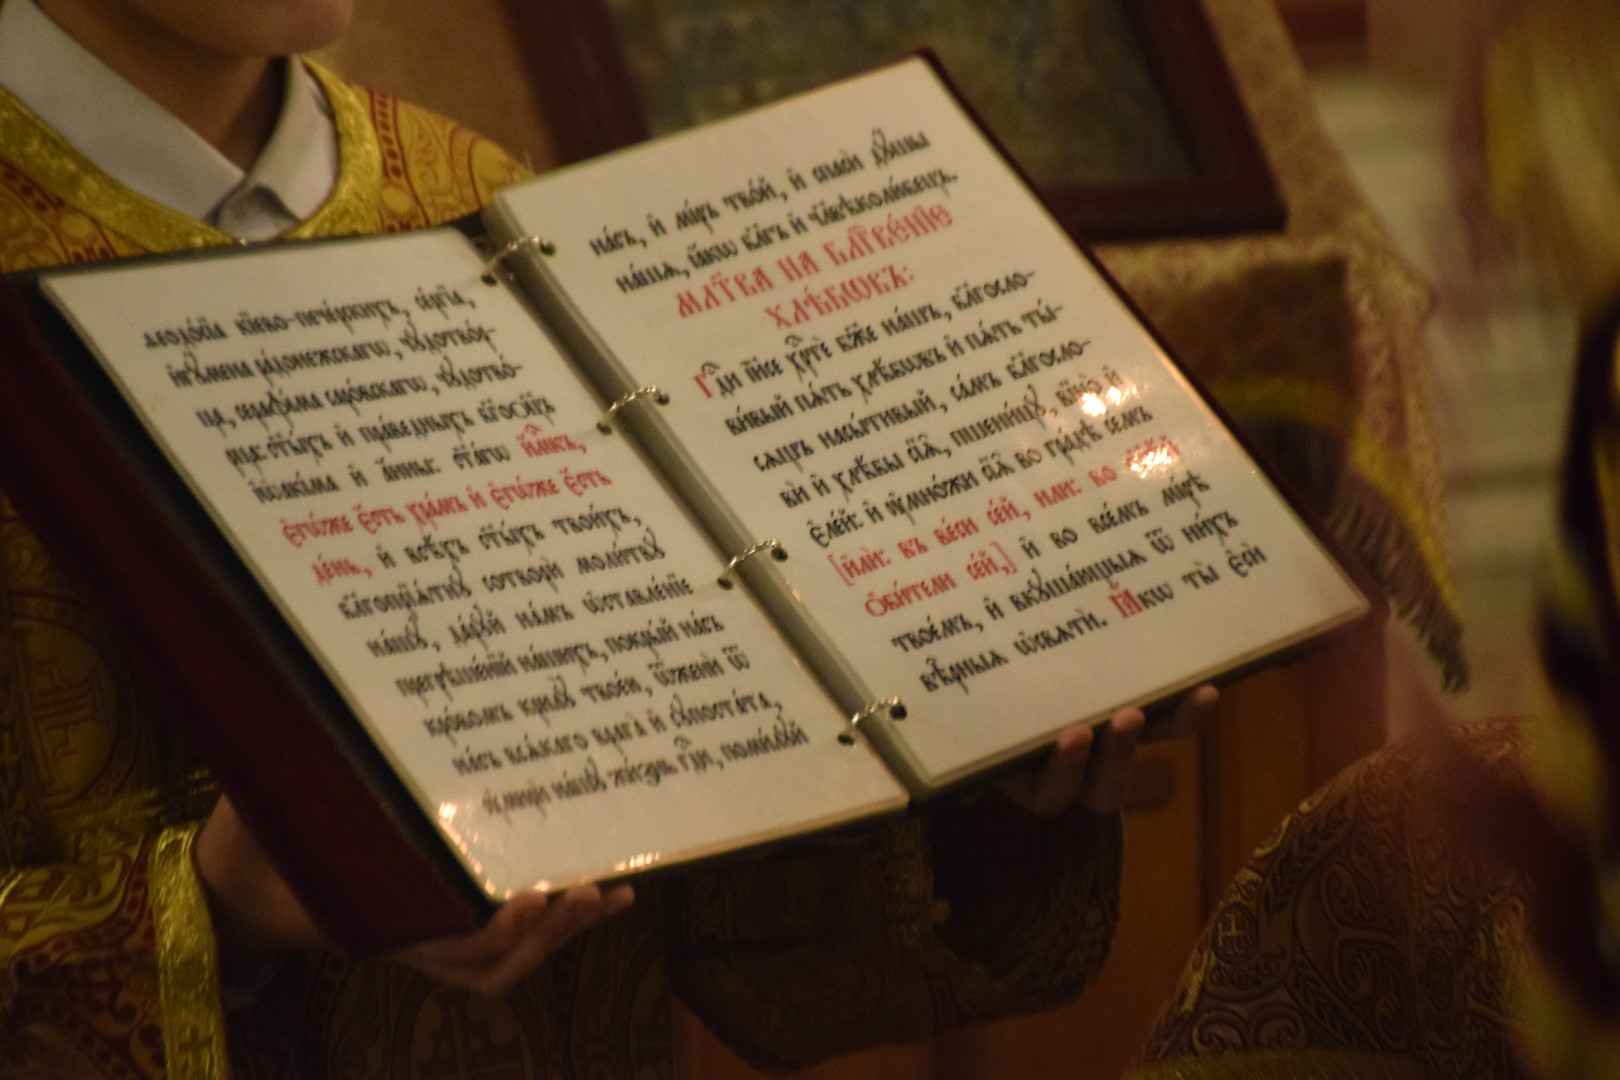 ѳеодо́сїа кї́ево-пече́рскихъ, се́ргїа,
и҆гꙋ́мена ра́донежскагѡ, чꙋдотво́р-
ца, серафі́ма саро́вскагѡ, чꙋдотво́-
рца: ст҃ы́хъ и҆ пра́ведныхъ бг҃оѻтє́цъ
і҆ѡакі́ма и҆ а҆́нны: ст҃а́гѡ и҆́м҃къ,
є҆гѡ́же є҆́сть хра́мъ и҆ є҆гѡ́же є҆́сть
де́нь, и҆ всѣ́хъ ст҃ы́хъ твои́хъ,
бл҃гопрїѧ́тнꙋ сотворѝ моли́твꙋ
на́шꙋ, да́рꙋй на́мъ ѡ҆ставле́нїе
прегрѣше́нїй на́шихъ, покры́й на́съ
кро́вомъ крилꙋ̀ твоє́ю, ѿженѝ ѿ
на́съ всѧ́каго врага̀ и҆ сꙋпоста́та,
ᲂу҆мирѝ на́шꙋ жи́знь: гдⷭ҇и, поми́лꙋй
на́съ, и҆ мі́ръ тво́й, и҆ спасѝ дꙋ́шы
на́шѧ, ꙗ҆́кѡ бл҃гъ и҆ чл҃вѣколю́бецъ.
МЛ҃ТВА НА БЛГⷭ҇ВЕ́НЇЕ
ХЛѢ́БѠВЪ:
Гдⷭ҇и і҆и҃се хрⷭ҇тѐ бж҃е на́шъ, бл҃госло-
ви́вый пѧ́ть хлѣ́бѡвъ и҆ пѧ́ть ты́-
сѧщъ насы́тивый, са́мъ бл҃госло-
вѝ и҆ хлѣ́бы сїѧ̑, пшени́цꙋ, вїно̀ и҆
є҆ле́й: и҆ ᲂу҆мно́жи сїѧ̑ во гра́дѣ се́мъ
[и҆лѝ: въ ве́си се́й, и҆лѝ: во ст҃ѣ́й
ѻ҆би́тели се́й,] и҆ во все́мъ мі́рѣ
твое́мъ, и҆ вкꙋша́ющыѧ ѿ ни́хъ
вѣ̑рныѧ ѡ҆ст҃ѝ. Ꙗ҆́кѡ ты̀ є҆сѝ